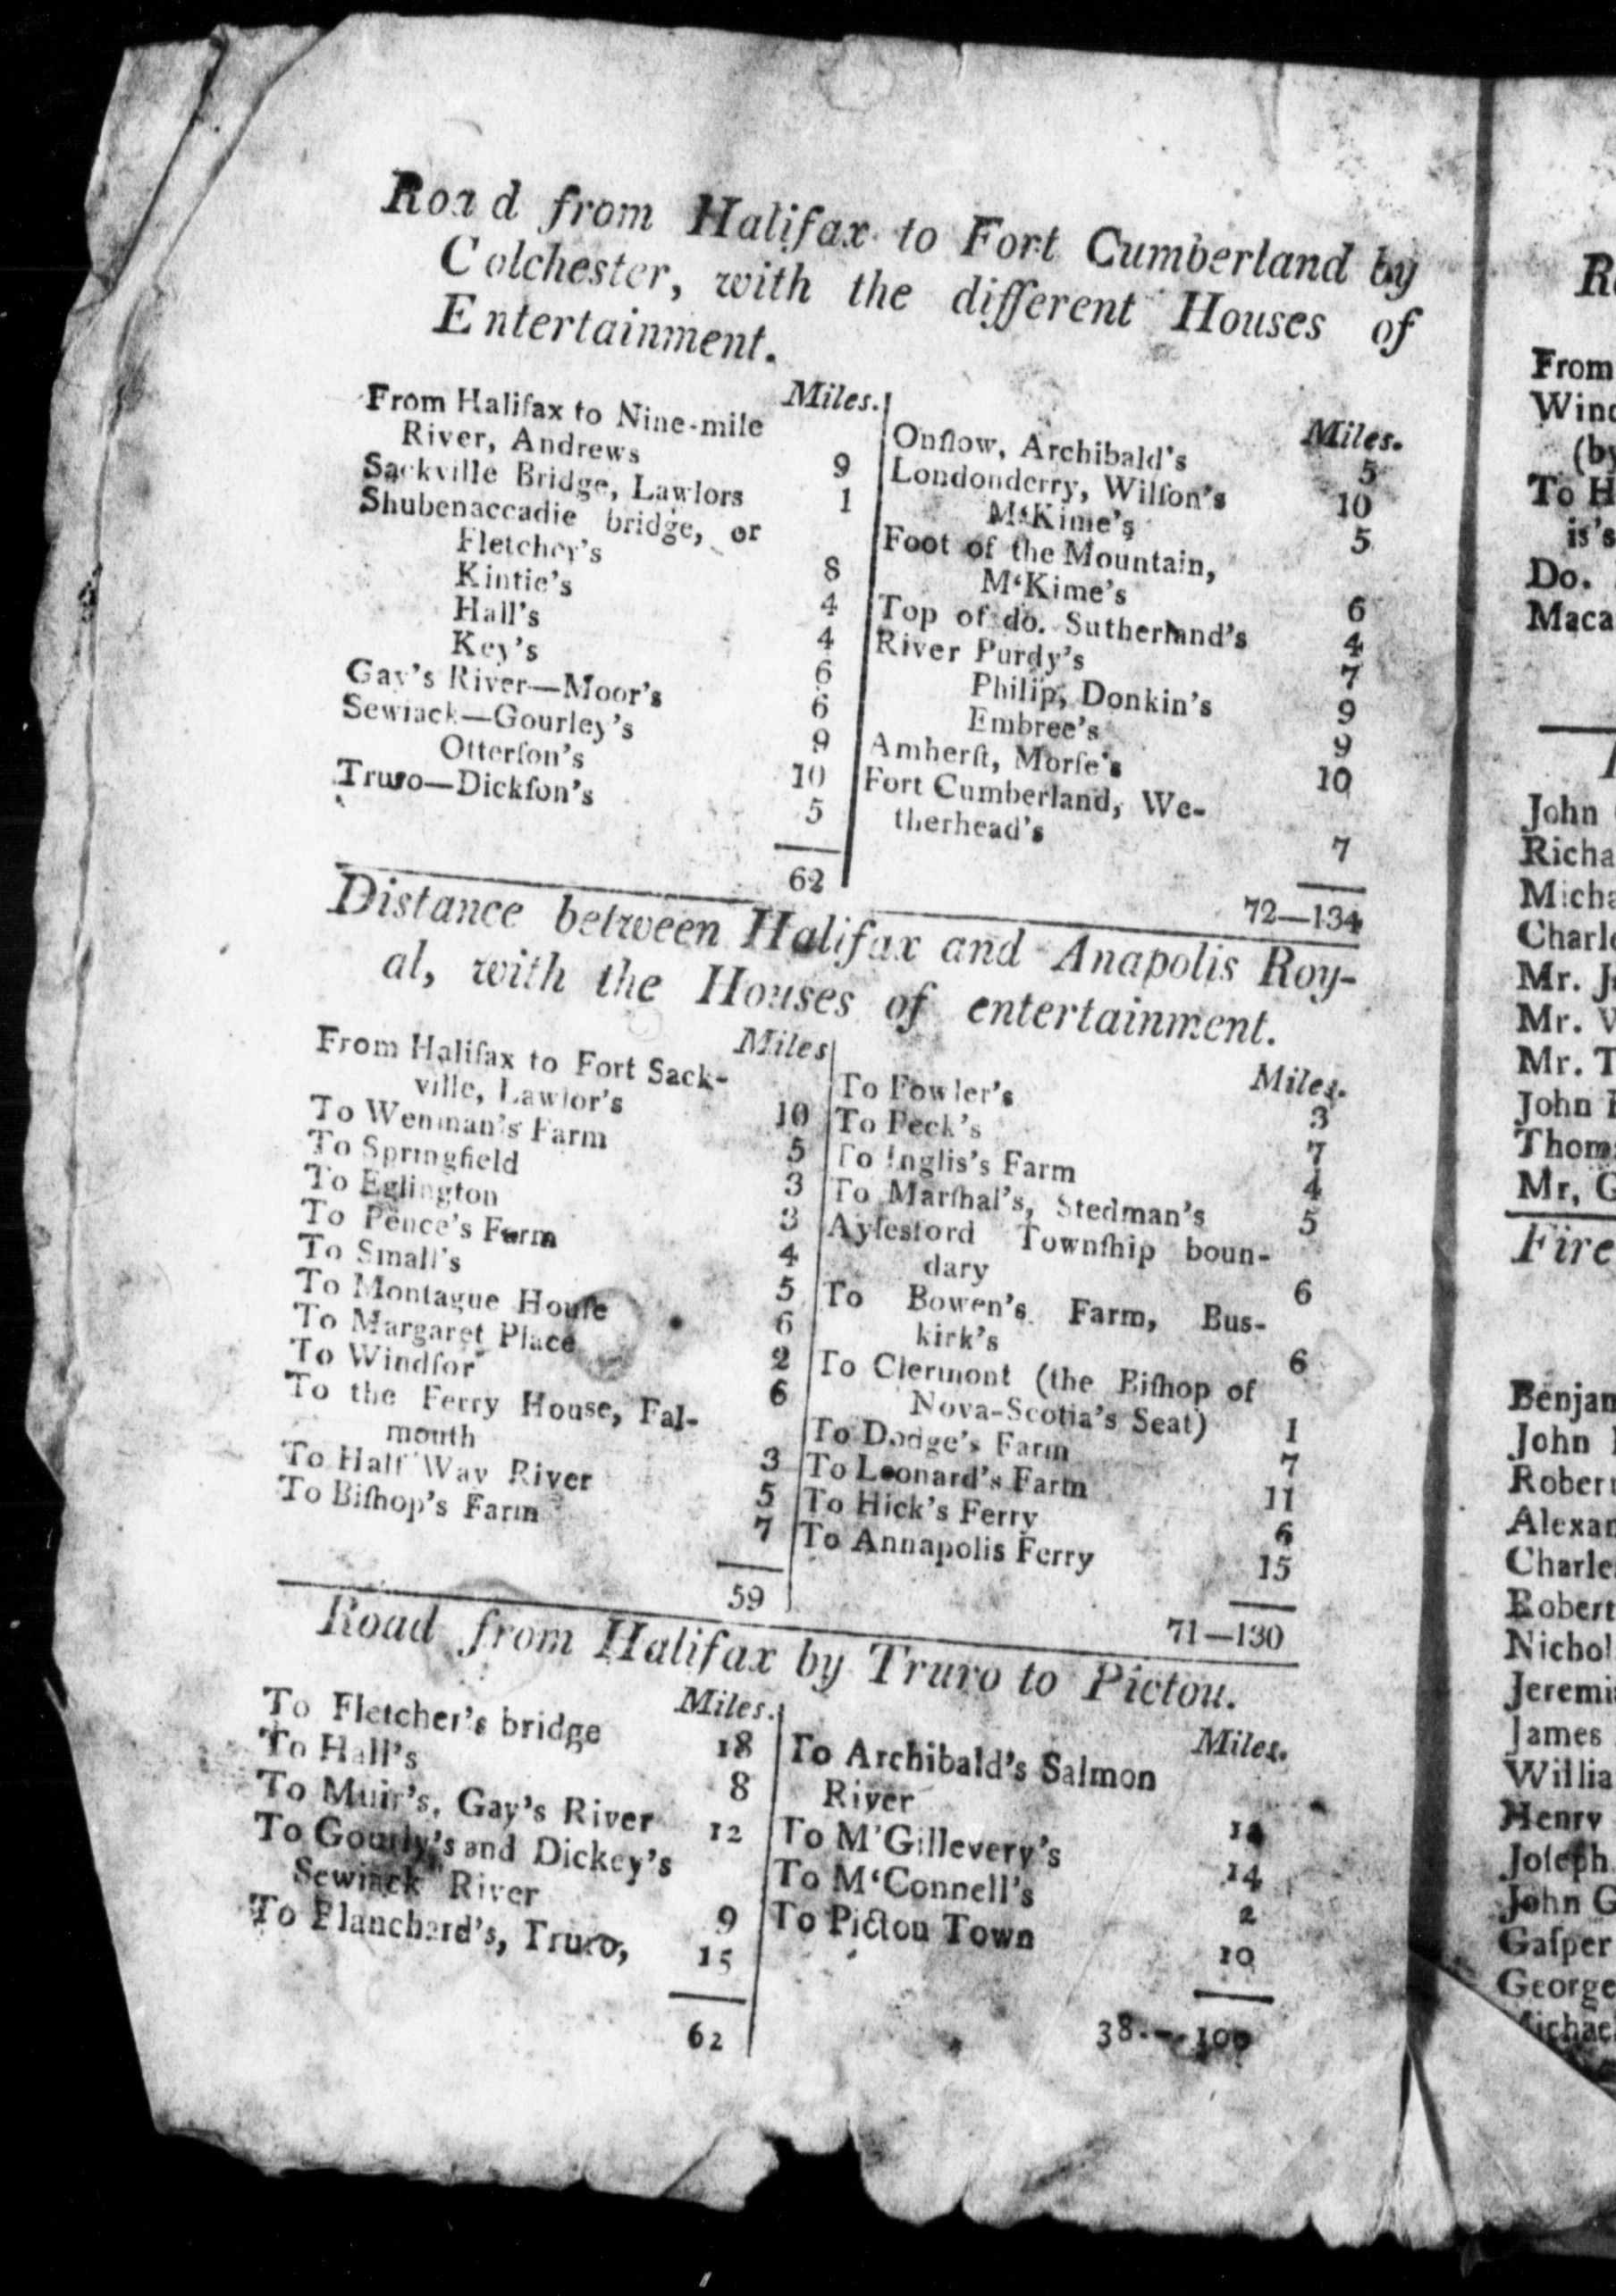 Road from Halifax to Fort Cumberland by
Colchester, with the different Houses of
Entertainment.
Miles.
From Halifax to Nine-mile
River, Andrews 9
Sackville Bridge, Lawlors 1
Shubenaccadie bridge, or
Fletcher's 8
Kintie's 4
Hall's 4
Key's 6
Gay's River—Moor's 6
Sewiack—Gourley's 9
Otterſon's 10
Truro—Dickſon's 5
62
Miles.
Onſlow, Archibald's 5
Londonderry, Wilſon's 10
M‘Kime's 5
Foot of the Mountain,
M‘Kime's 6
Top of do. Sutherland's 4
River Purdy's 7
Philip, Donkin's 9
Embree's 9
Amherſt, Morſe's 10
Fort Cumberland, We-
therhead's 7
72—134
Distance between Halifax and Anapolis Roy-
al, with the Houses of entertainment.
Miles
From Halifax to Fort Sack-
ville, Lawlor's 10
To Wenman's Farm 5
To Springfield 3
To Eglington 3
To Pence's Farm 4
To Small's 5
To Montague Houſe 6
To Margaret Place 2
To Windſor 6
To the Ferry House, Fal-
mouth 3
To Half Way River 5
To Biſhop's Farm 7
59
Miles.
To Fowler's 3
To Peck's 7
To Inglis's Farm 4
To Marſhal's, Stedman's 5
Ayleſford Townſhip boun-
dary 6
To Bowen's Farm, Bus-
kirk's 6
To Clermont (the Biſhop of
Nova-Scotia's Seat) 1
To Dodge's Farm 7
To Leonard's Farm 11
To Hick's Ferry 6
To Annapolis Ferry 15
71—130
Road from Halifax by Truro to Pictou.
Miles.
To Fletcher's bridge 18
To Hall's 8
To Muir's, Gay's River 12
To Gourly's and Dickey's
Sewiack River 9
To Blanchard's, Truro, 15
62
Miles.
To Archibald's Salmon
River 12
To M'Gillevery's 14
To M‘Connell's 2
To Pictou Town 10
38—100
From
(by
To H
is's
Do.
Maca
John
Richa
Micha
Charl
Mr. J
Mr.
Mr. T
John
Thom
Mr, G
Fire
Benjam
John
Robert
Alexan
Charle
Robert
Nichol
Jeremi
James
Willia
Henry
Joſeph
John G
Gaſper
George
Michae